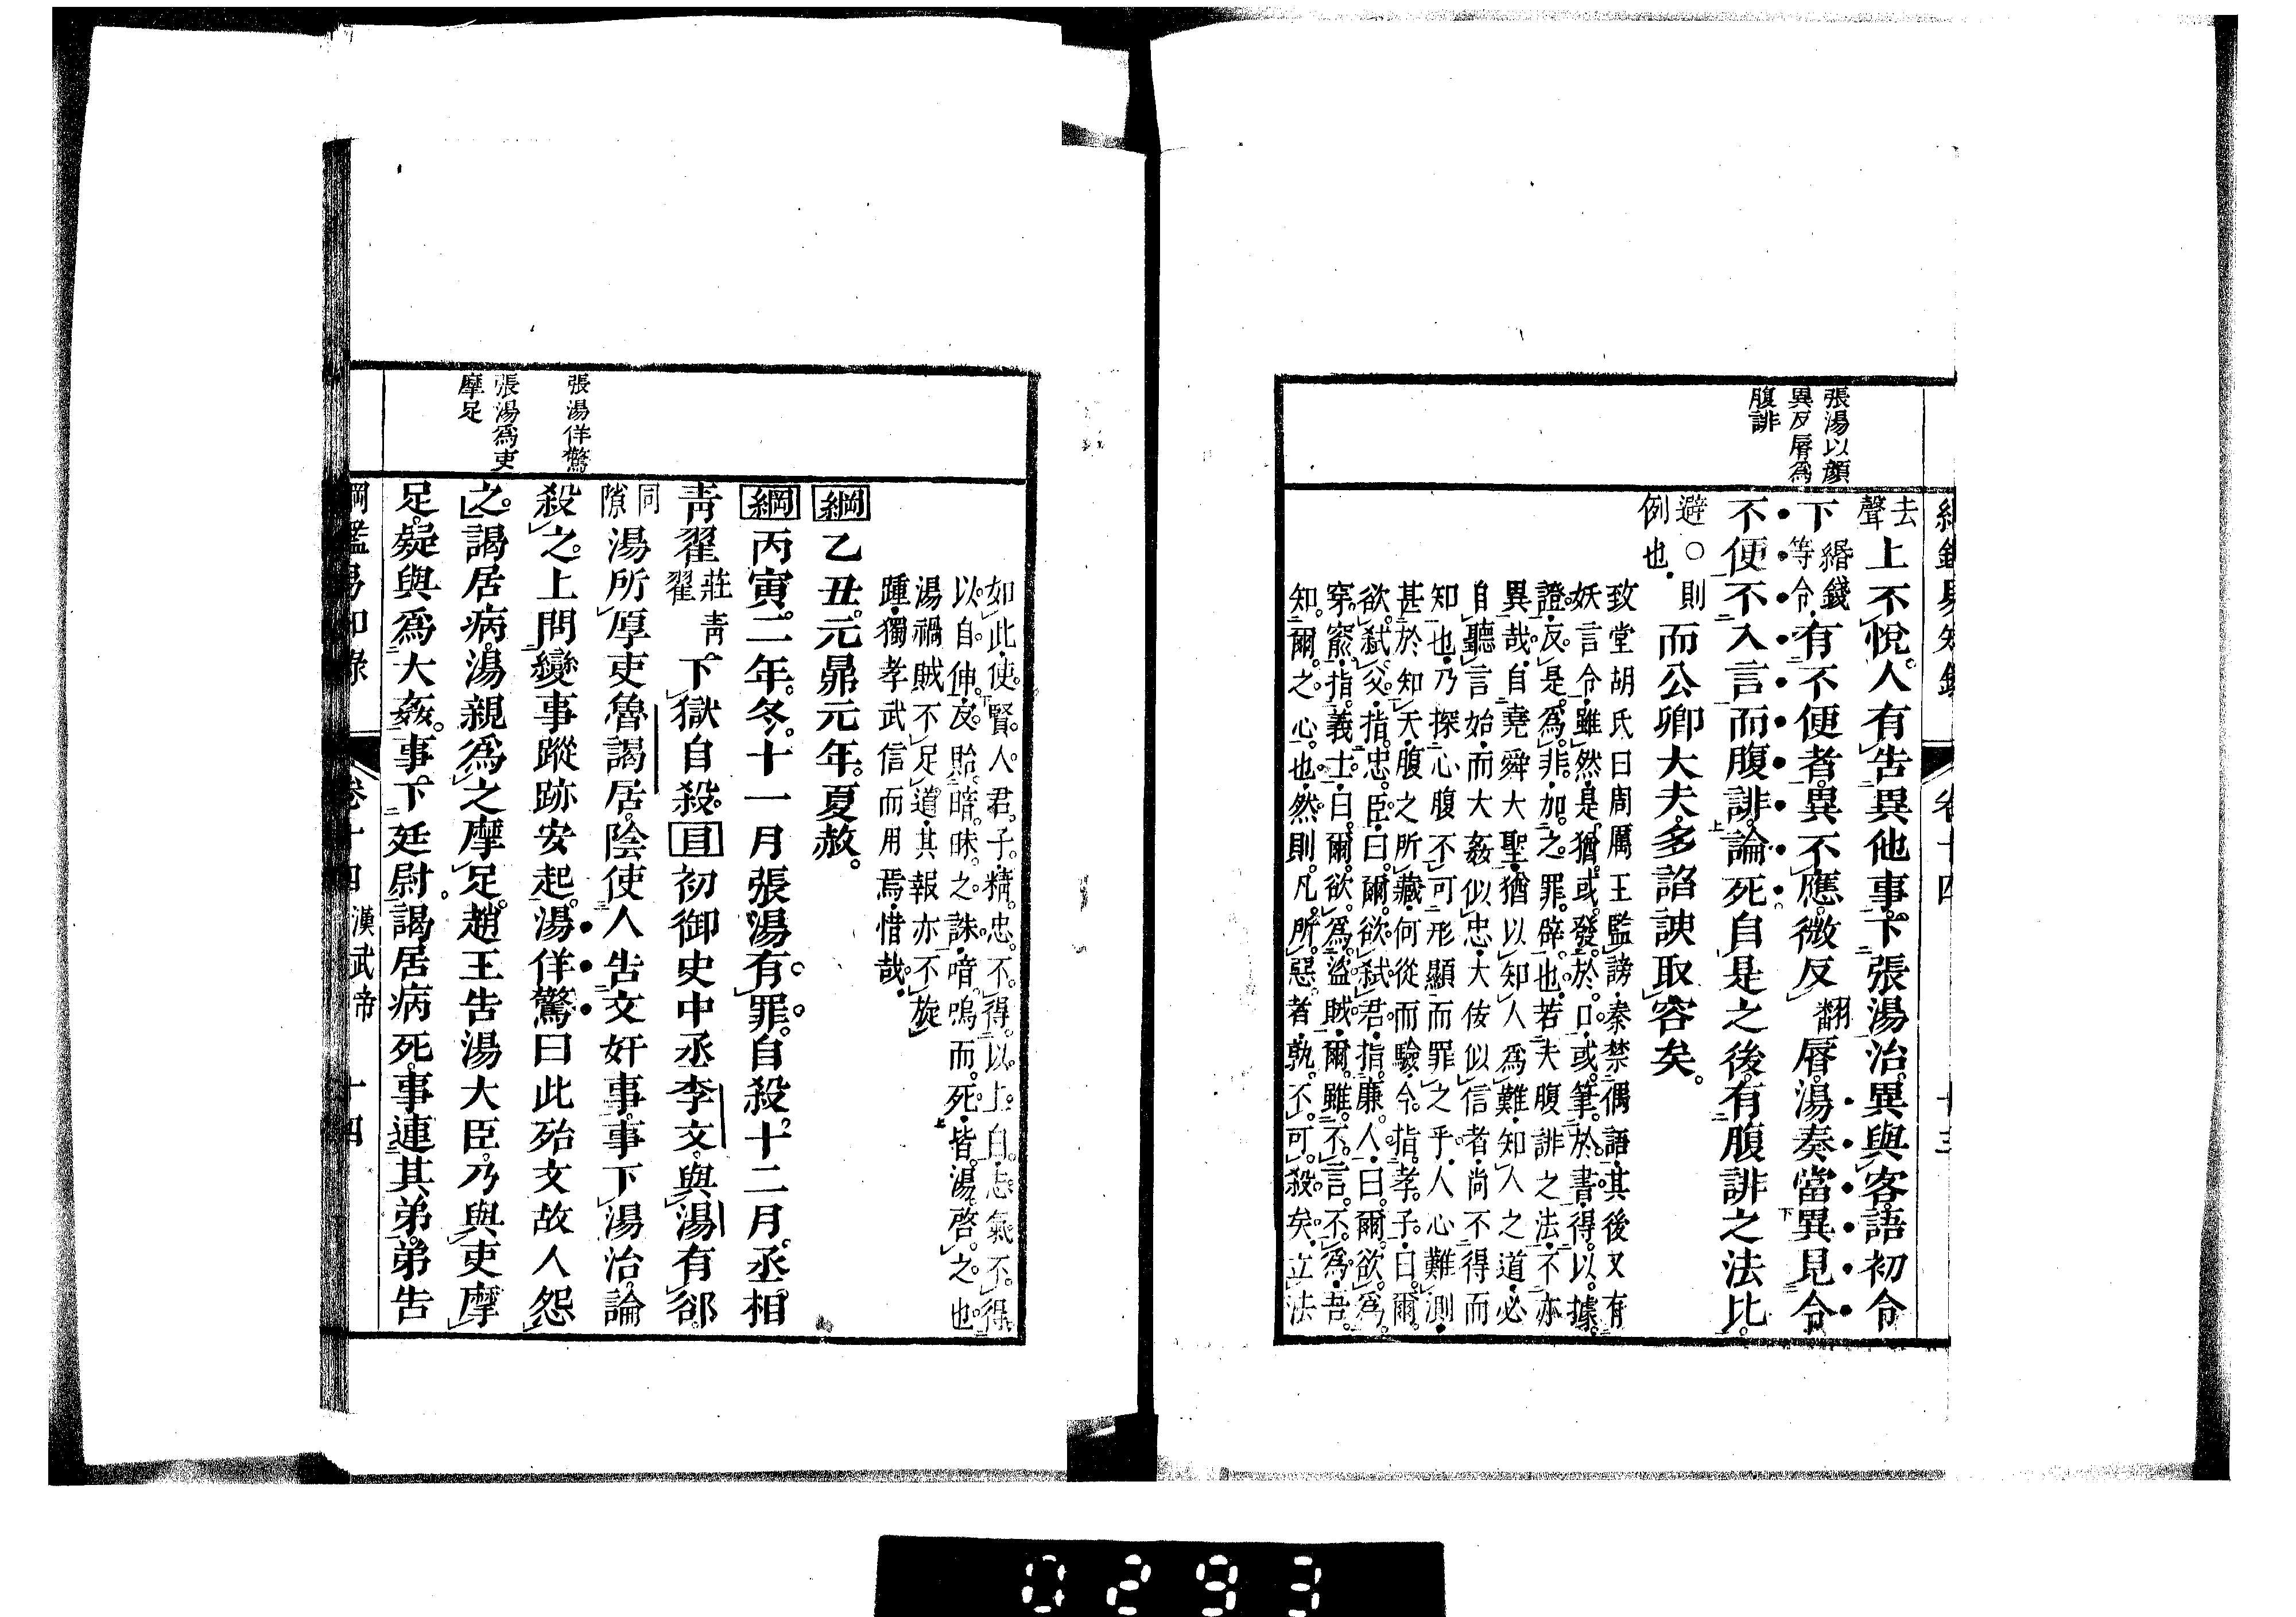 張湯以顏
異反脣為
腹誹
去聲上不悅人有告異他事下張湯治異與客語初令
下緡錢等令有不便者異不應微反翻脣湯奏當異見令
不便不入言而腹誹論死自是之後有腹誹之法比
避○則例也而公卿大夫多諂諛取容矣
致堂胡氏曰周厲王監謗秦禁偶語其後又有
妖言令雖然是猶或發於口或筆於書得以據
證反是為非加之罪辟也若夫腹誹之法不亦
異哉自堯舜大聖猶以知人為難知人之道必
自聽言始而大姦似忠大佞似信者尚不得而
知也乃探心腹不可形顯而罪之乎人心難測
甚於知天腹之所藏何從而驗令指孝子曰爾
欲弒父指忠臣曰爾欲弒君指廉人曰爾欲為
穿窬指義士曰爾欲為盜賊爾雖不言不為吾
知爾之心也然則凡所惡者孰不可殺矣立法
如此使賢人君子精忠不得以上白志氣不得
以自伸反貽暗昧之誅喑嗚而死皆湯啓之也
湯禍賊不足道其報亦不旋
踵獨孝武信而用焉惜哉
綱乙丑元鼎元年夏赦
綱丙寅二年冬十一月張湯有罪自殺十二月丞相
青翟莊青翟下獄自殺目初御史中丞李文與湯有郤
同隙湯所厚吏魯謁居陰使人告文奸事事下湯治論
殺之上問變事蹤跡安起湯佯驚曰此殆文故人怨
之謁居病湯親為之摩足趙王告湯大臣乃與吏摩
足疑與為大姦事下廷尉謁居病死事連其弟弟告
張湯佯驚
張湯為吏
摩足
綱鑑易知錄 卷十四 漢武帝 十四